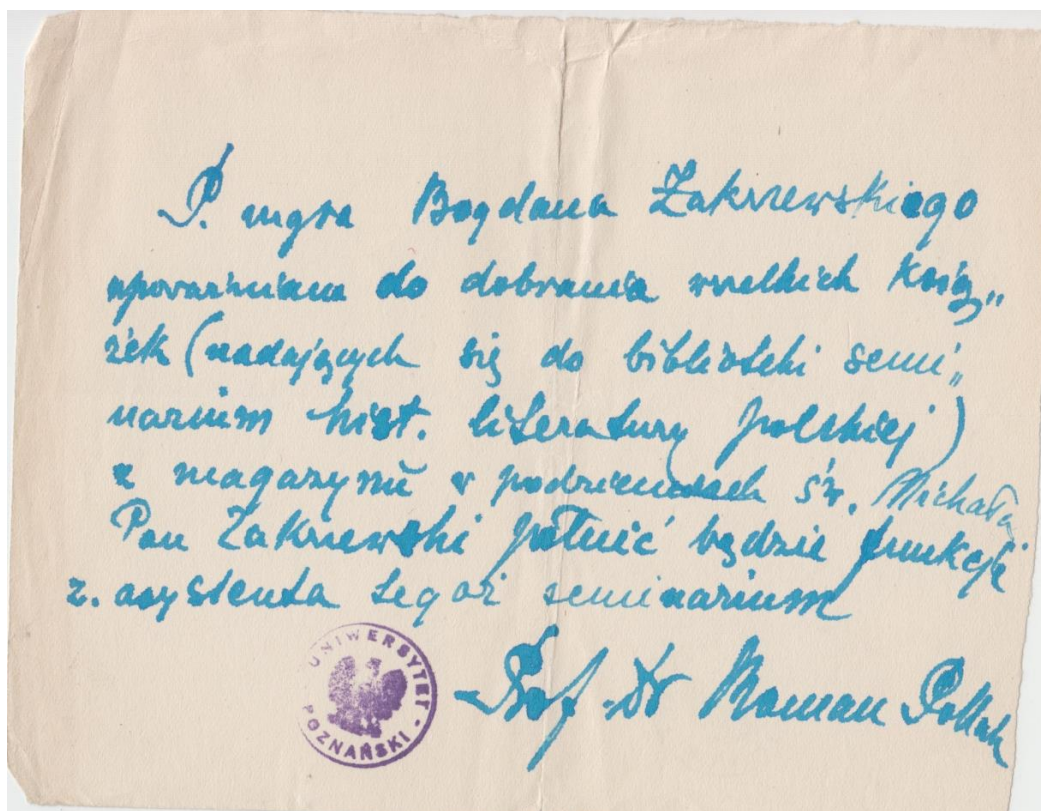 P. mgra Bogdana Zakrzewskiego
upoważniam do dobrania wszelkich książ„
żek (nadających się do biblioteki semi„
narium hist. literatury polskiej)
z magazynu w podziemiach św. Michała
Pan Zakrzewski pełnić będzie funkcję
z. asystenta tegoż seminarium
Prof. Dr Roman Pollak
UNIWERSYTET POZNAŃSKI